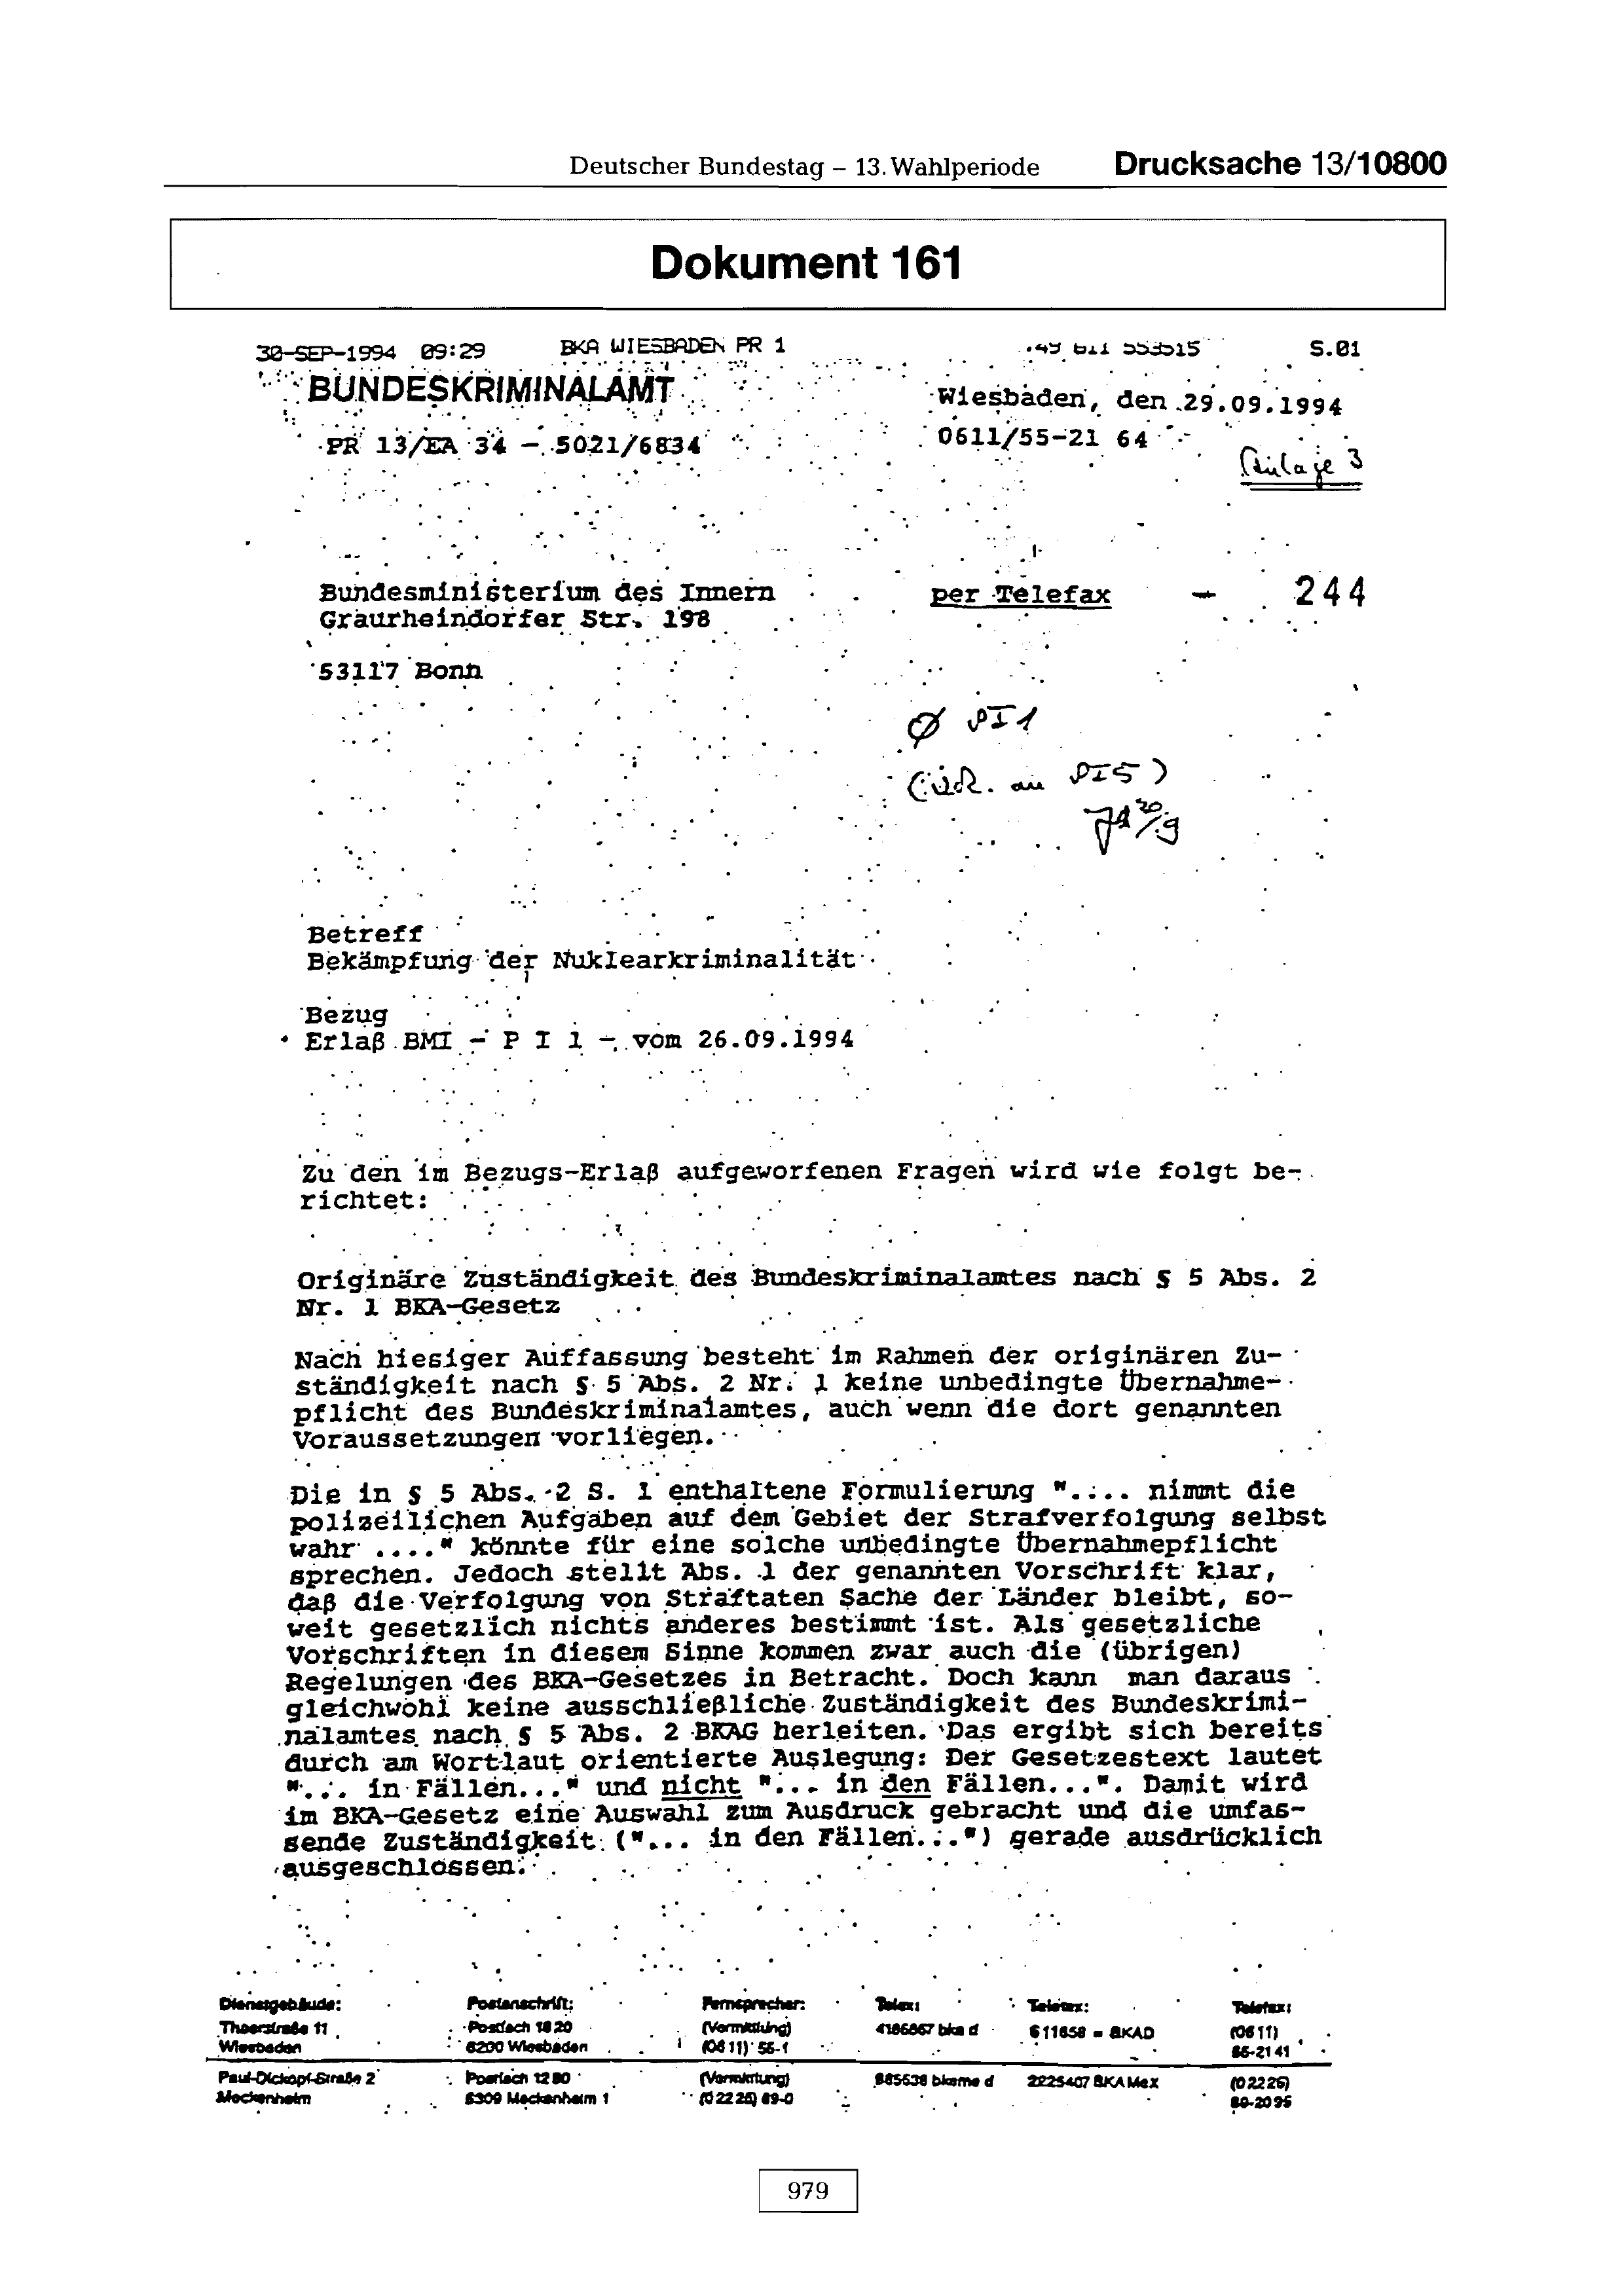 Deutscher Bundestag – 13. Wahlperiode Drucksache 13/10800
Dokument 161
30-SEP-1994 09:29 BKA WIESBADEN PR 1 S.01
BUNDESKRIMINALAMT
Wiesbaden, den 29.09.1994
PR 13/EA 34 - 5021/6834
0611/55-21 64
Anlage 3
Bundesministerium des Innern per Telefax - 244
Graurheindorfer Str. 198
53117 Bonn
Ø PI1
Betreff
Bekämpfung der Nuklearkriminalität
Bezug
Erlaß BMI - P I 1 - vom 26.09.1994
Zu den im Bezugs-Erlaß aufgeworfenen Fragen wird wie folgt be-
richtet:
Originäre Zuständigkeit des Bundeskriminalamtes nach § 5 Abs. 2
Nr. 1 BKA-Gesetz
Nach hiesiger Auffassung besteht im Rahmen der originären Zu-
ständigkeit nach § 5 Abs. 2 Nr. 1 keine unbedingte Übernahme-
pflicht des Bundeskriminalamtes, auch wenn die dort genannten
Voraussetzungen vorliegen.
Die in § 5 Abs. 2 S. 1 enthaltene Formulierung ".... nimmt die
polizeilichen Aufgaben auf dem Gebiet der Strafverfolgung selbst
wahr ...." könnte für eine solche unbedingte Übernahmepflicht
sprechen. Jedoch stellt Abs. 1 der genannten Vorschrift klar,
daß die Verfolgung von Straftaten Sache der Länder bleibt, so-
weit gesetzlich nichts anderes bestimmt ist. Als gesetzliche
Vorschriften in diesem Sinne kommen zwar auch die (übrigen)
Regelungen des BKA-Gesetzes in Betracht. Doch kann man daraus
gleichwohl keine ausschließliche Zuständigkeit des Bundeskrimi-
nalamtes nach § 5 Abs. 2 BKAG herleiten. Das ergibt sich bereits
durch am Wortlaut orientierte Auslegung: Der Gesetzestext lautet
"... in Fällen..." und nicht "... in den Fällen...". Damit wird
im BKA-Gesetz eine Auswahl zum Ausdruck gebracht und die umfas-
sende Zuständigkeit ("... in den Fällen...") gerade ausdrücklich
ausgeschlossen.
Dienstgebäude: Postanschrift: Fernsprecher: Telex: Teletex: Telefax:
Thaerstraße 11 Postfach 1820 (Vermittlung) 4186867 bka d 611858 = BKAD (0611)
Wiesbaden 6200 Wiesbaden (0611) 55-1 55-2141
Paul-Dickopf-Straße 2 Postfach 1280 (Vermittlung) 885638 bkame d 2225407 BKA MeX (02225)
Meckenheim 5309 Meckenheim 1 (02225) 89-0 89-2095
979